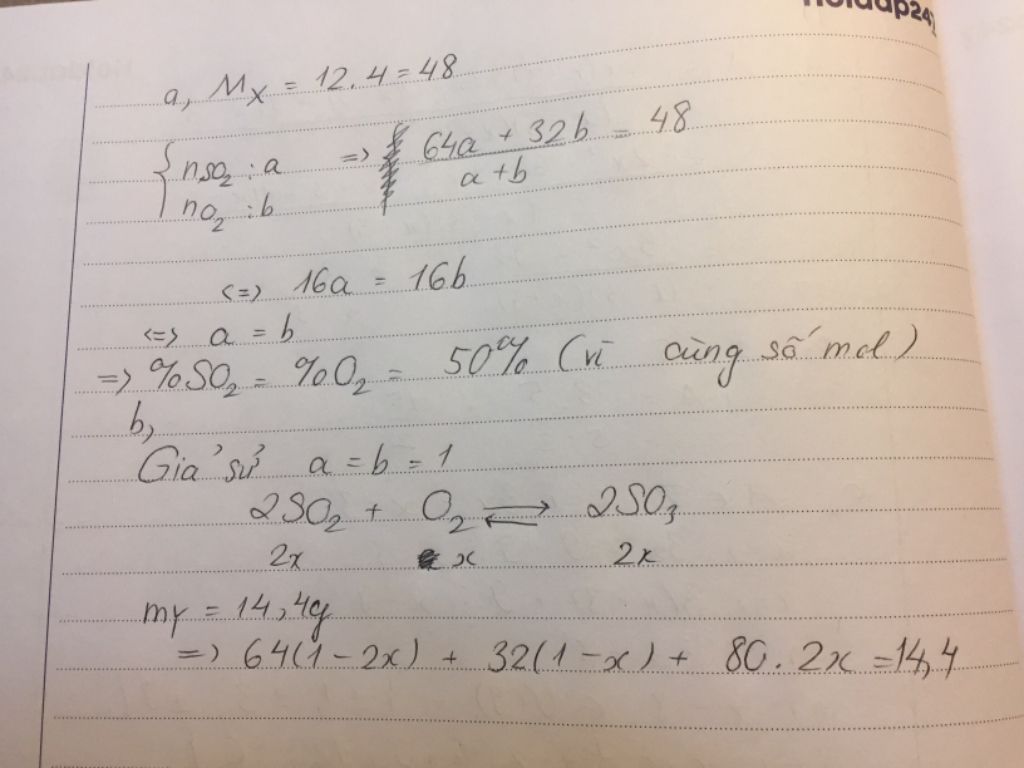 hoidap247
a, Mx = 12.4 = 48
{ nSO2 : a => 64a + 32b / a + b = 48
nO2 : b
<=> 16a = 16b
<=> a = b
=> %SO2 = %O2 = 50% (vì cùng số mol)
b,
Giả sử a = b = 1
2SO2 + O2 ⇌ 2SO3
2x x 2x
mY = 14,4g
=> 64(1 - 2x) + 32(1 - x) + 80. 2x = 14,4